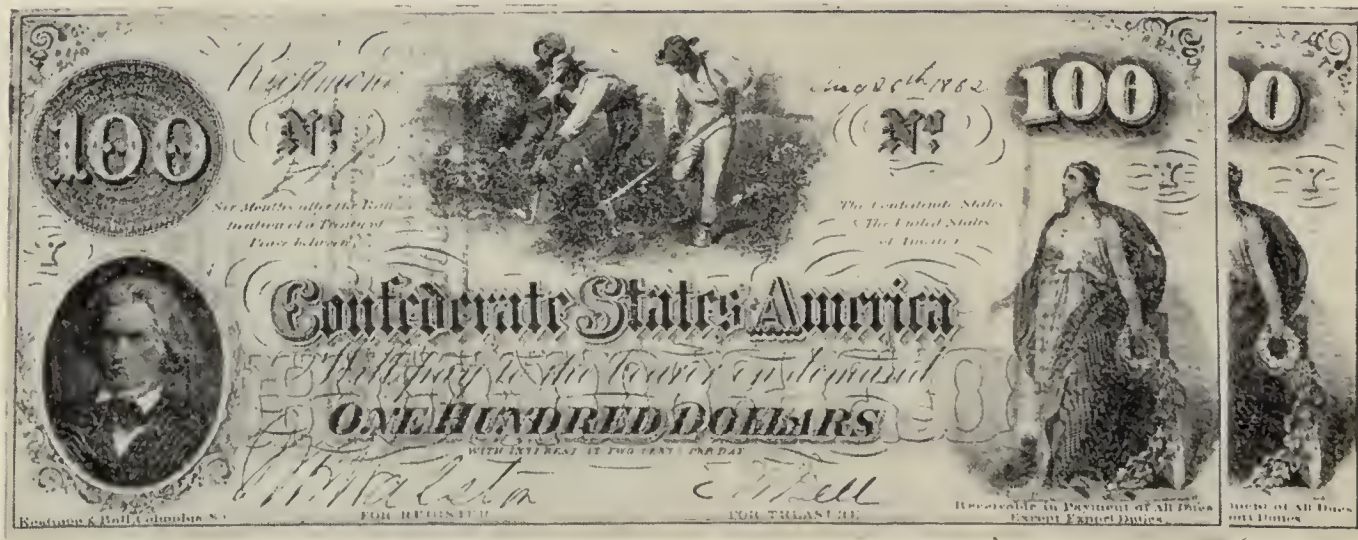 100
Richmond
Aug 26th 1862
100
00
No
No
Six Months after the Rati-
fication of a Treaty of
Peace between
The Confederate States
& The United States
of America
Confederate States America
Will pay to the bearer on demand
ONE HUNDRED DOLLARS
WITH INTEREST AT TWO CENTS PER DAY
FOR REGISTER
FOR TREASURE
Keatinge & Ball, Columbia, S.C.
Receivable in Payment of All Dues
Except Export Duties
ment of All Dues
ort Duties